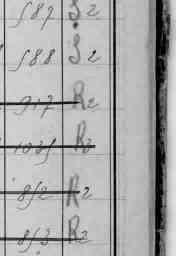 587 S2
588 S2
917 R2
1035 R2
852 R2
853 R2